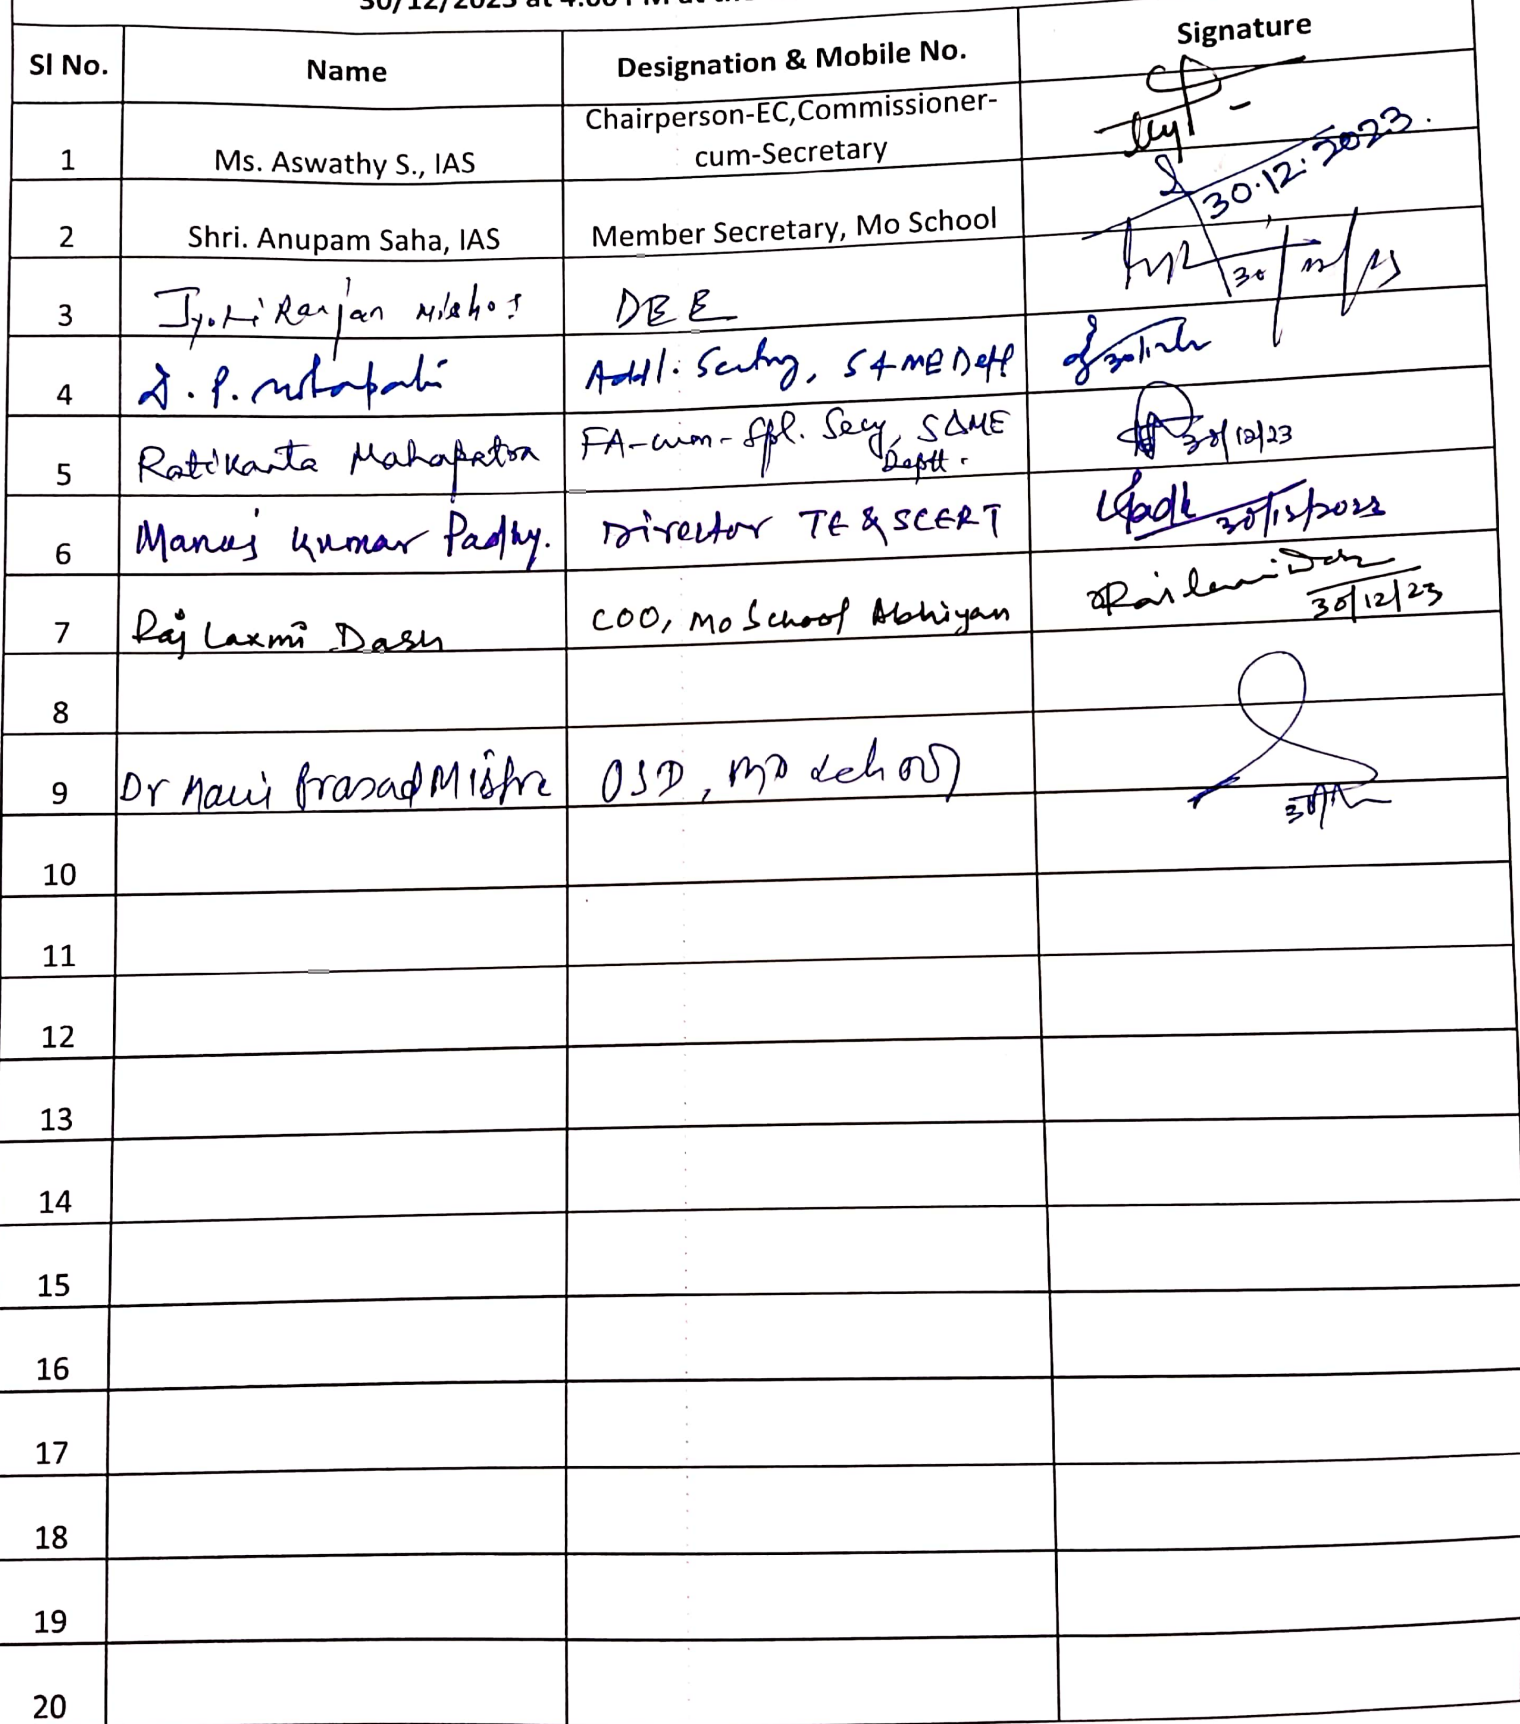 30/12/2023 at 4:00 PM at the
Sl No. Name Designation & Mobile No. Signature
1 Ms. Aswathy S., IAS Chairperson-EC,Commissioner-
cum-Secretary
30.12.2023.
2 Shri. Anupam Saha, IAS Member Secretary, Mo School
3 Jyoti Ranjan Mishra DEE
4 Addl. S&ME Dept
5 Ratikanta Mahapatra FA-cum-Spl. Secy, S&ME
Deptt. 30/12/23
6 Manoj Kumar Padhy. Director TE & SCERT 30/12/2023
7 Raj Laxmi Dash COO, Mo School Abhiyan
30/12/23
8
9 Dr Prasad Mishra OSD, Mo School
10
11
12
13
14
15
16
17
18
19
20